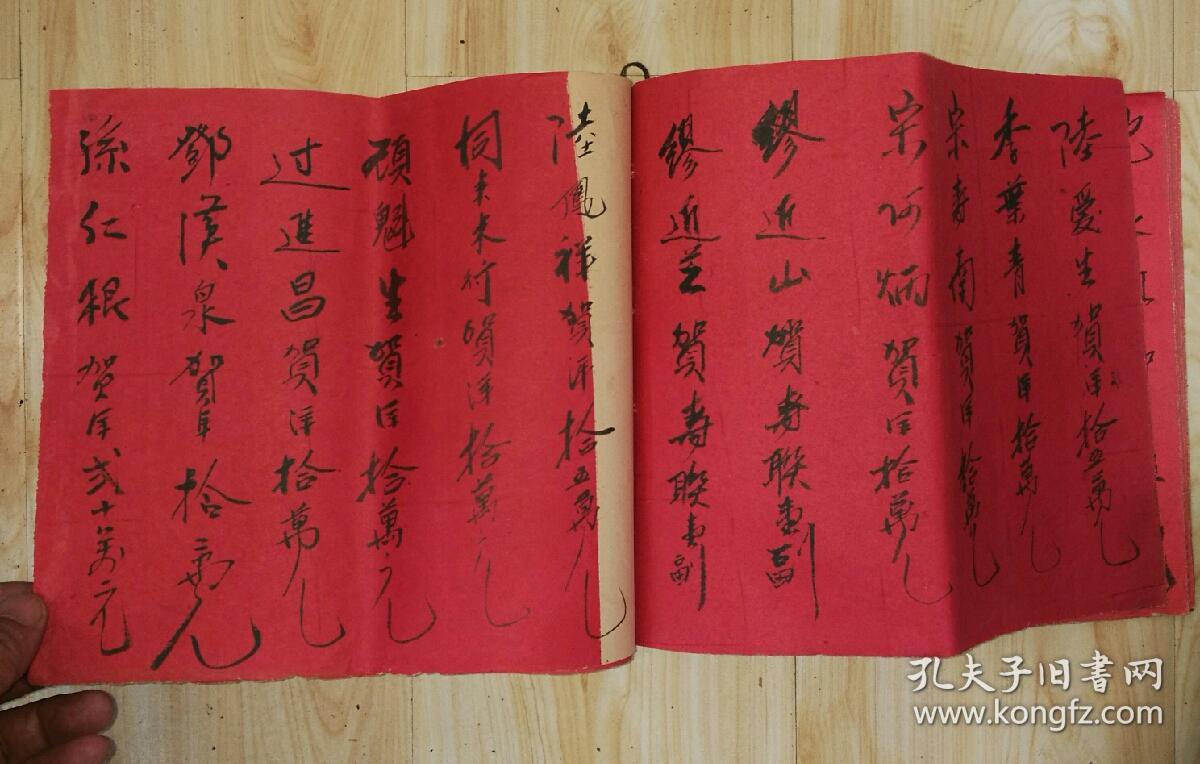 陸愛生賀洋拾五萬元
李葉青賀洋拾萬元
宋壽南賀洋拾萬元
宋阿炳賀洋拾萬元
繆近山賀壽聯壹副
繆近芝賀壽聯壹副
陸鳳祥賀洋拾五萬元
木行賀洋拾萬元
顧魁生賀洋拾萬元
过進昌賀洋拾萬元
鄧漢泉賀洋拾萬元
孫仁根賀洋弍十萬元
孔夫子旧书网
www.kongfz.com